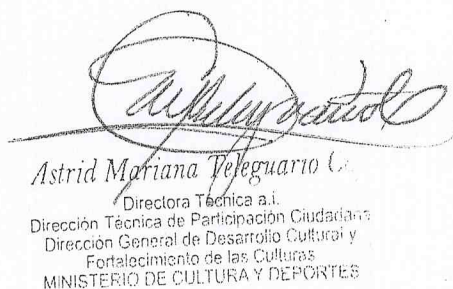 Astrid Mariana Teleguario
Directora Técnica a.i.
Dirección Técnica de Participación Ciudadana
Dirección General de Desarrollo Cultural y
Fortalecimiento de las Culturas
MINISTERIO DE CULTURA Y DEPORTES